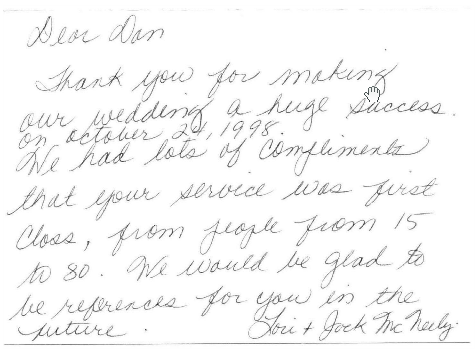 Dear Dan
Thank you for making
our wedding a huge success.
on october 24, 1998.
We had lots of compliments
that your service was first
class, from people from 15
to 80. We would be glad to
be references for you in the
future.
Lori + Jack McNeely